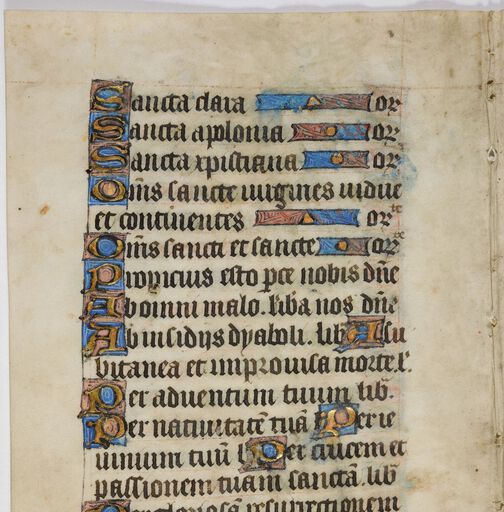 Sancta clara or
Sancta aplonia or
Sancta xpistiana or
Om̄s sancte uirgines uidue
et continentes orte
Om̄s sancti et sancte orte
Propicius esto pce nobis dn̄e
Ab omni malo. liba nos dn̄e
Ab insidijs dyaboli. lib A su
bitanea et improuisa morte. l'.
Per aduentum tuum lib̄.
Per natiuitatē tuā l Per ie
iunium tuū l Per crucem et
passionem tuam sanctā. lib̄
Per gloriosā resurrectionem